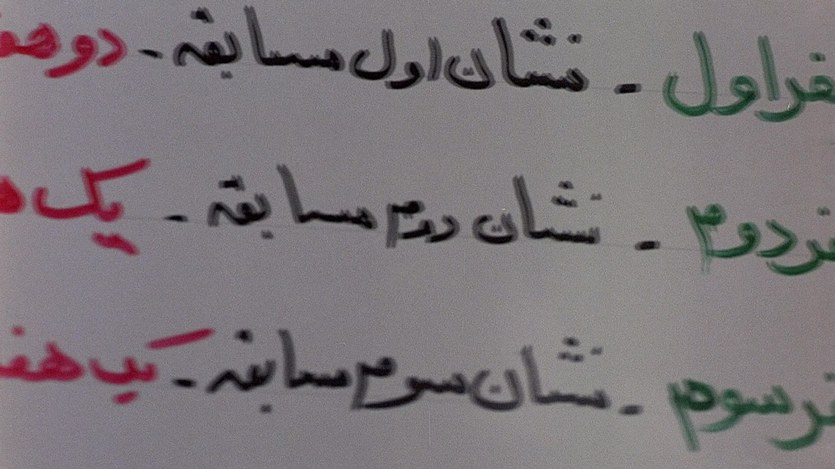 نفر اول - نشان اول مسابقه - دو هف
نفر دوم - نشان دوم مسابقه - یک ه
نفر سوم - نشان سوم مسابقه - یک هف